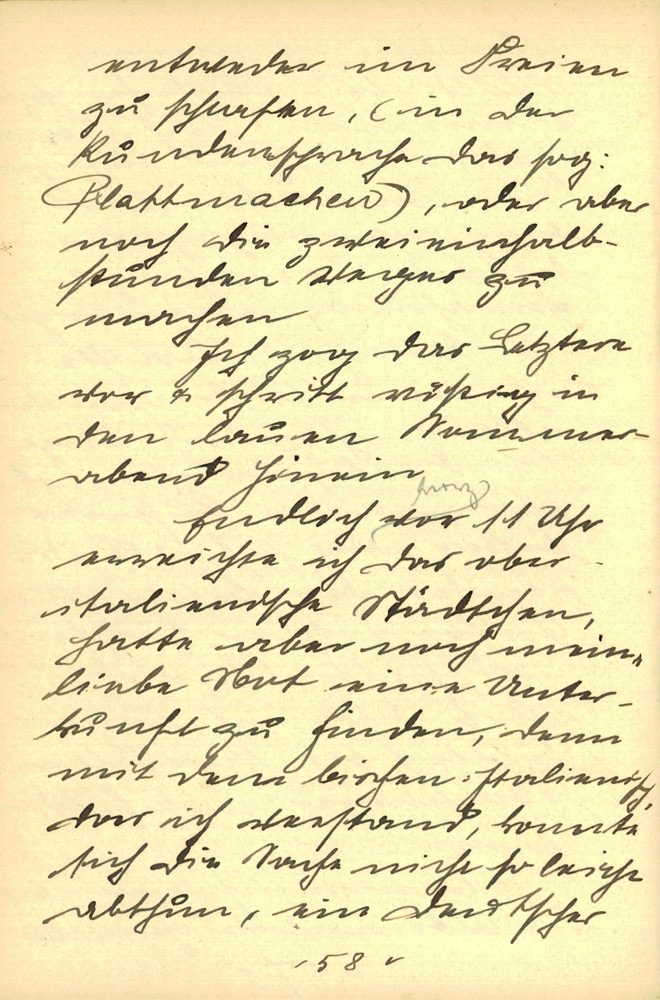 entweder im Freien
zu schlafen, (in der
Kundensprache das sog:
Plattmachen), oder aber
noch die zweieinhalb-
stunden Weges zu
machen
Ich zog das Letztere
vor & schritt rüstig in
den lauen Sommer-
abend hinein
kurz
Endlich vor 11 Uhr
erreichte ich das ober-
italienische Städtchen,
hatte aber noch mein,
liebe Not eine Unter-
kunft zu finden, denn
mit dem bischen Italienisch,
das ich verstand, konnte
sich die Sache nicht so leicht
abthun, ein deutscher
58